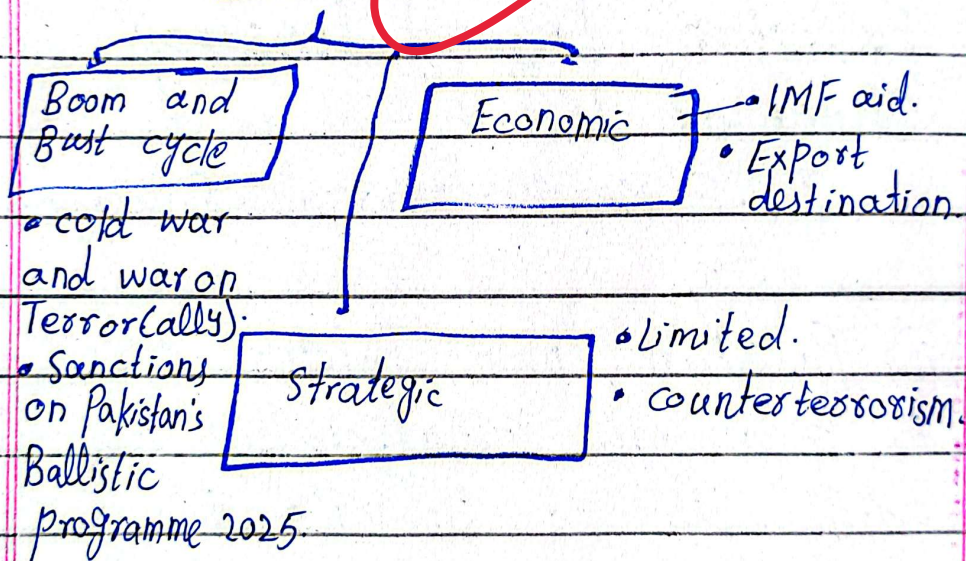 Boom and
Bust cycle
• cold war
and war on
Terror(ally).
• Sanctions
on Pakistan's
Ballistic
programme 2025.
Economic
• IMF aid.
• Export
destination.
Strategic
• Limited.
• counterterrorism.